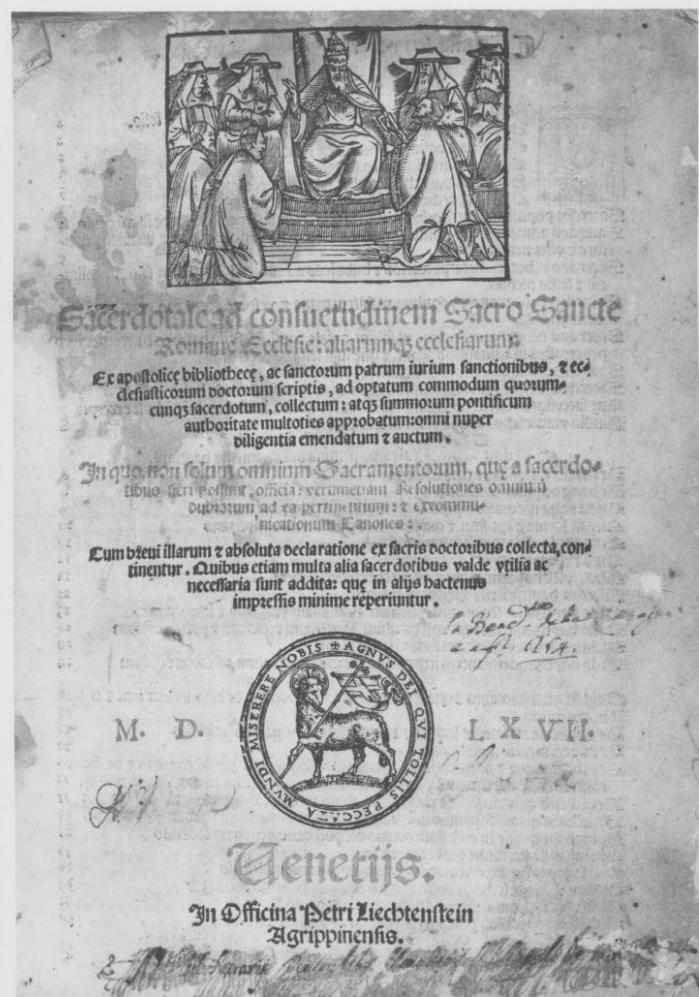 Sacerdotale ad consuetudinem Sacro Sancte
Romane Ecclesie: aliarumqꝫ ecclesiarum:
Ex apostolicę bibliothecę, ac sanctorum patrum iurium sanctionibus, ⁊ ec⸗
clesiasticorum doctorum scriptis, ad optatum commodum quorum⸗
cunqꝫ sacerdotum, collectum: atqꝫ summorum pontificum
authoritate multoties approbatum: omni nuper
diligentia emendatum ⁊ auctum.
In quo non solum omnium Sacramentorum, quę a sacerdo⸗
tibus fieri possunt, officia: verumetiam Resolutiones omniũ
dubiorum ad ea pertinentium: ⁊ excommu⸗
nicationum Canones:
Cum breui illarum ⁊ absoluta declaratione ex sacris doctoribus collecta, con⸗
tinentur. Quibus etiam multa alia sacerdotibus valde vtilia ac
necessaria sunt addita: quę in alijs hactenus
impressis minime reperiuntur.
✠ AGNVS DEI QVI TOLLIS PECCATA MVNDI MISERERE NOBIS
M. D. LXVII.
Venetijs.
In Officina Petri Liechtenstein
Agrippinensis.